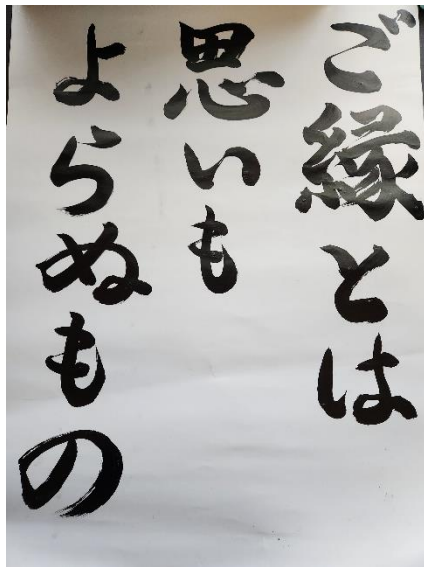 ご縁とは
思いも
よらぬもの